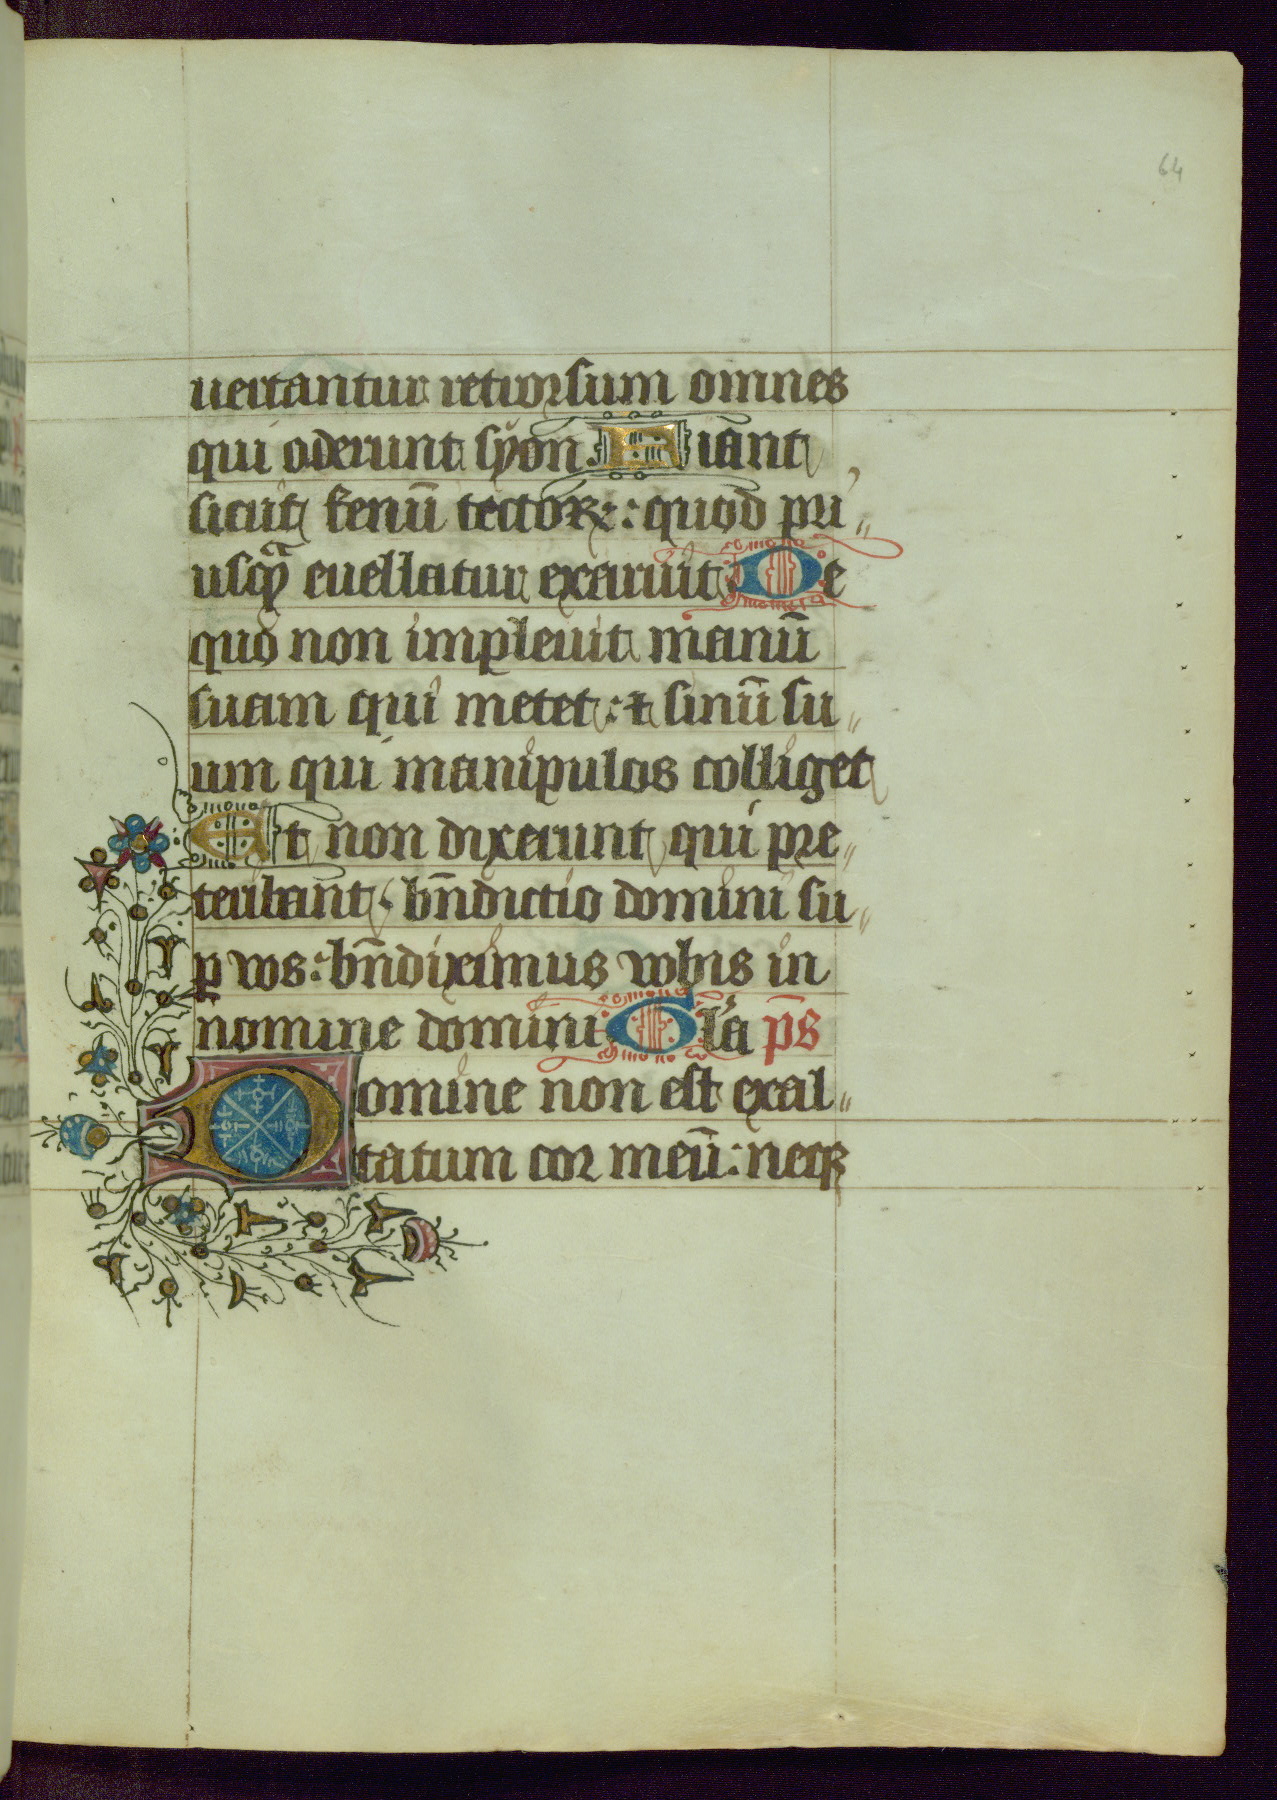 64
uertantur retrorsum omnes
qui oderunt syon. Fiant
sicut fenū tectorꝝ: quod pri
usqᷓ euellatur exaruit. De
quo non impleuit manū
suam qui metet: ⁊ sinū su
um qui manipulos colliget
Et non dixerunt qui pre
teribant. bn̄dictio domini su
ꝑ vos: bn̄diximus vobis in
nomine domini Gl̄a p̄s
Domine non est exal
tatum cor meū: neqꝫ